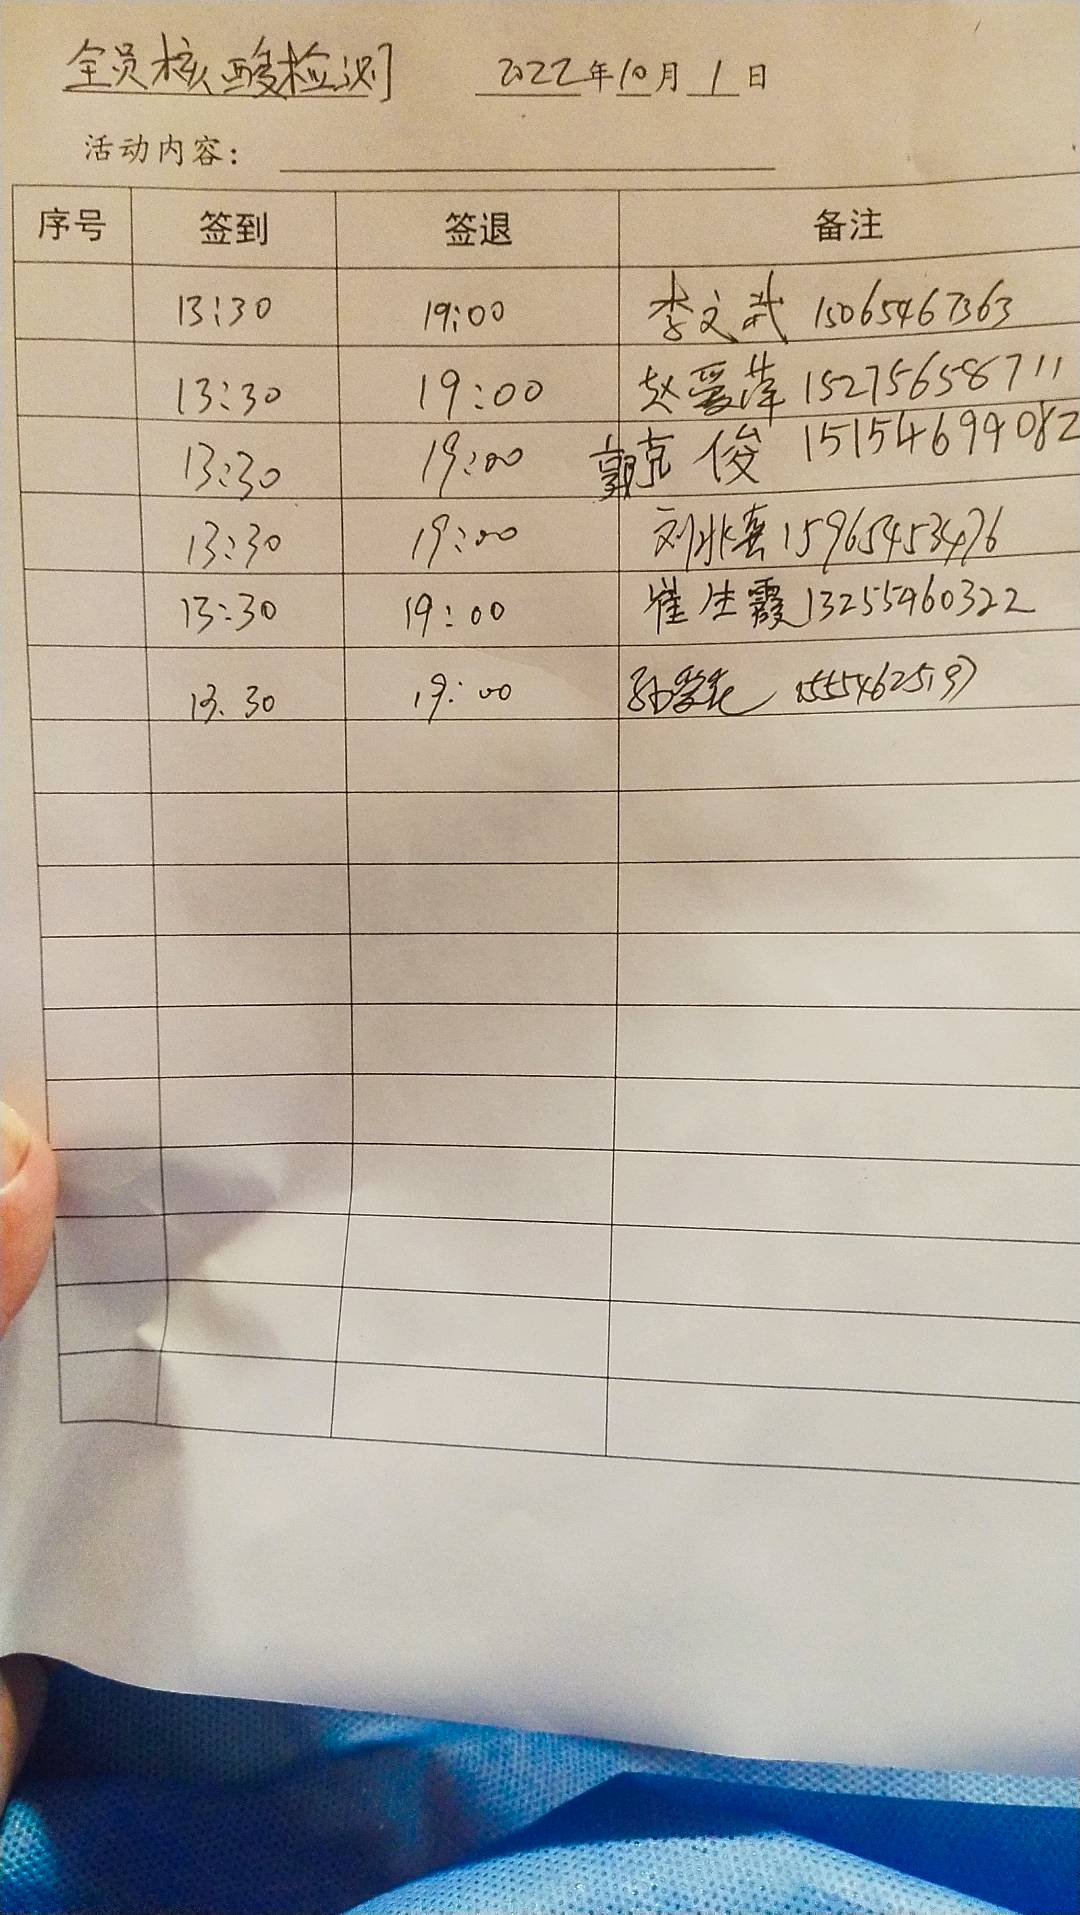 全员核酸检测 2022年10月1日
活动内容:
序号 签到 签退 备注
13:30 19:00 李文武 15065467363
13:30 19:00 赵爱萍 15275658711
13:30 19:00 郭克俊 15154699082
13:30 19:00 刘兆喜 15965453476
13:30 19:00 崔生霞 13255960322
13:30 19:00 孙爱花